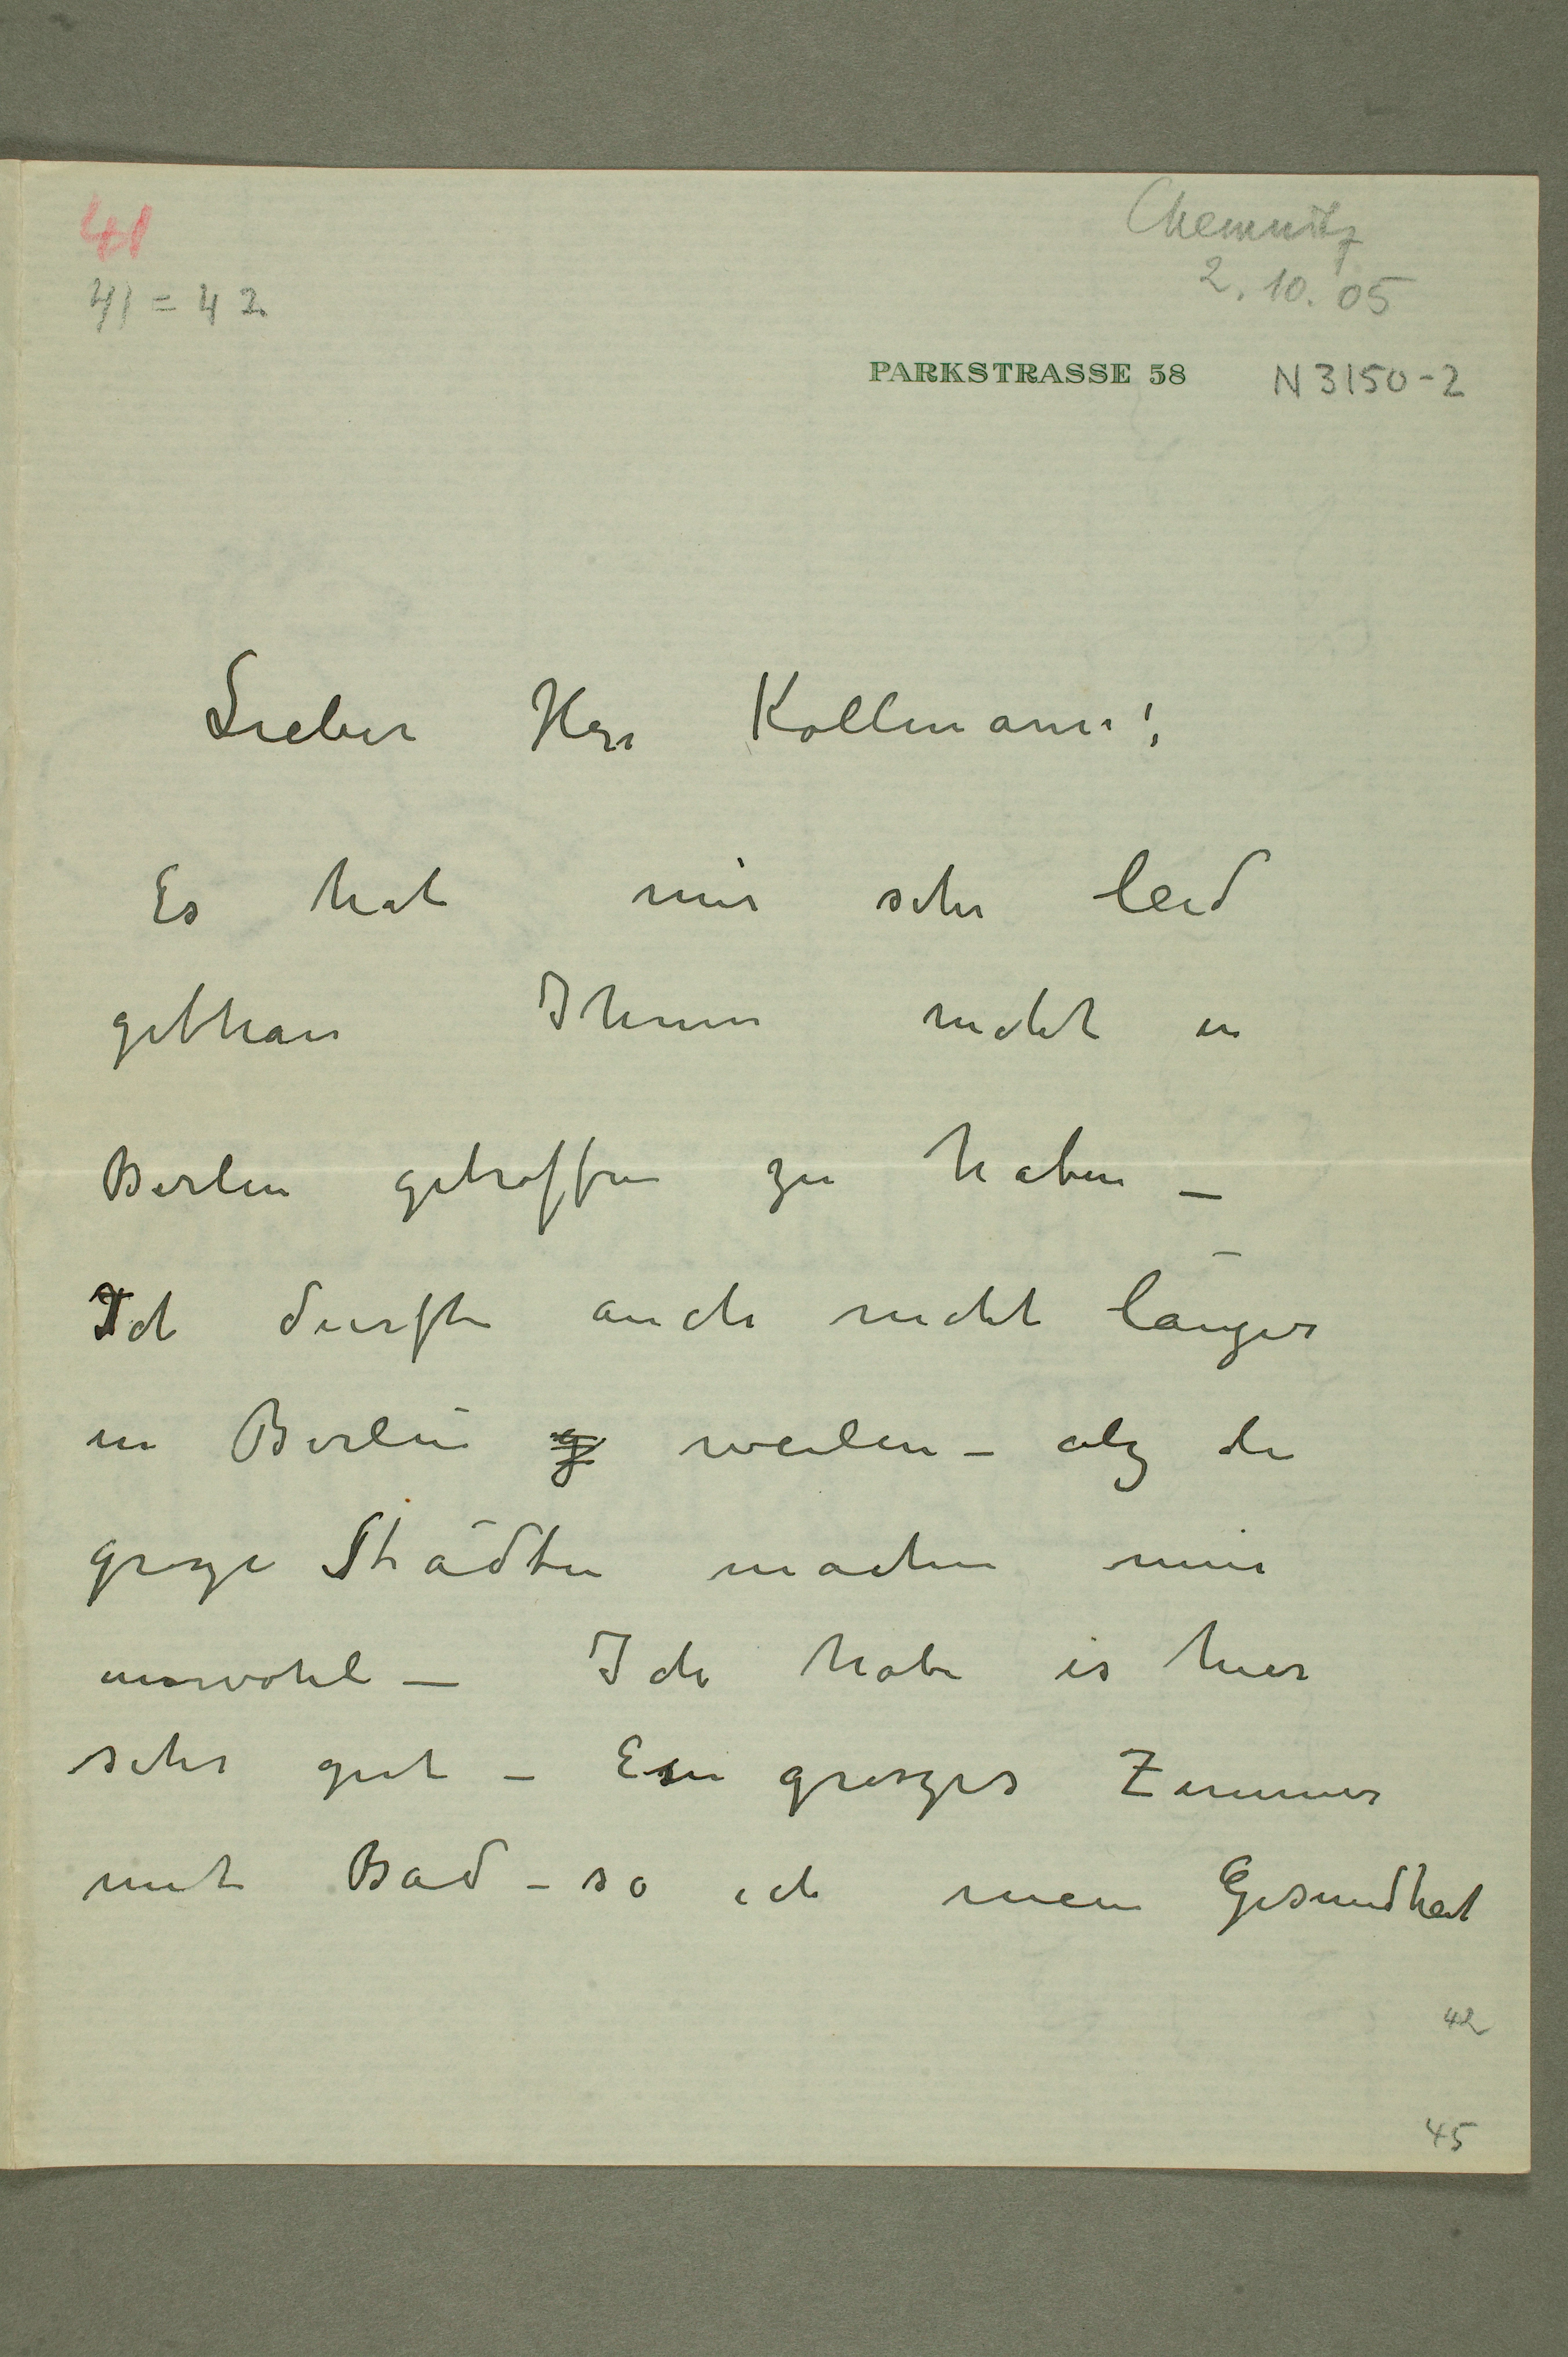 41
41 = 42
Chemnitz
2.10.05
PARKSTRASSE 58
N 3150-2
Lieber Herr Kollmann!
Es hat mir sehr leid
gethan Ihnen nicht in
Berlin getroffen zu haben –
Ich durfte auch nicht länger
in Berlin weilen – alz die
groze Städten machen mir
unwohl – Ich habe es hier
sehr gut – Ein groszes Zimmer
mit Bad – so ich mein Gesundheit
42
45